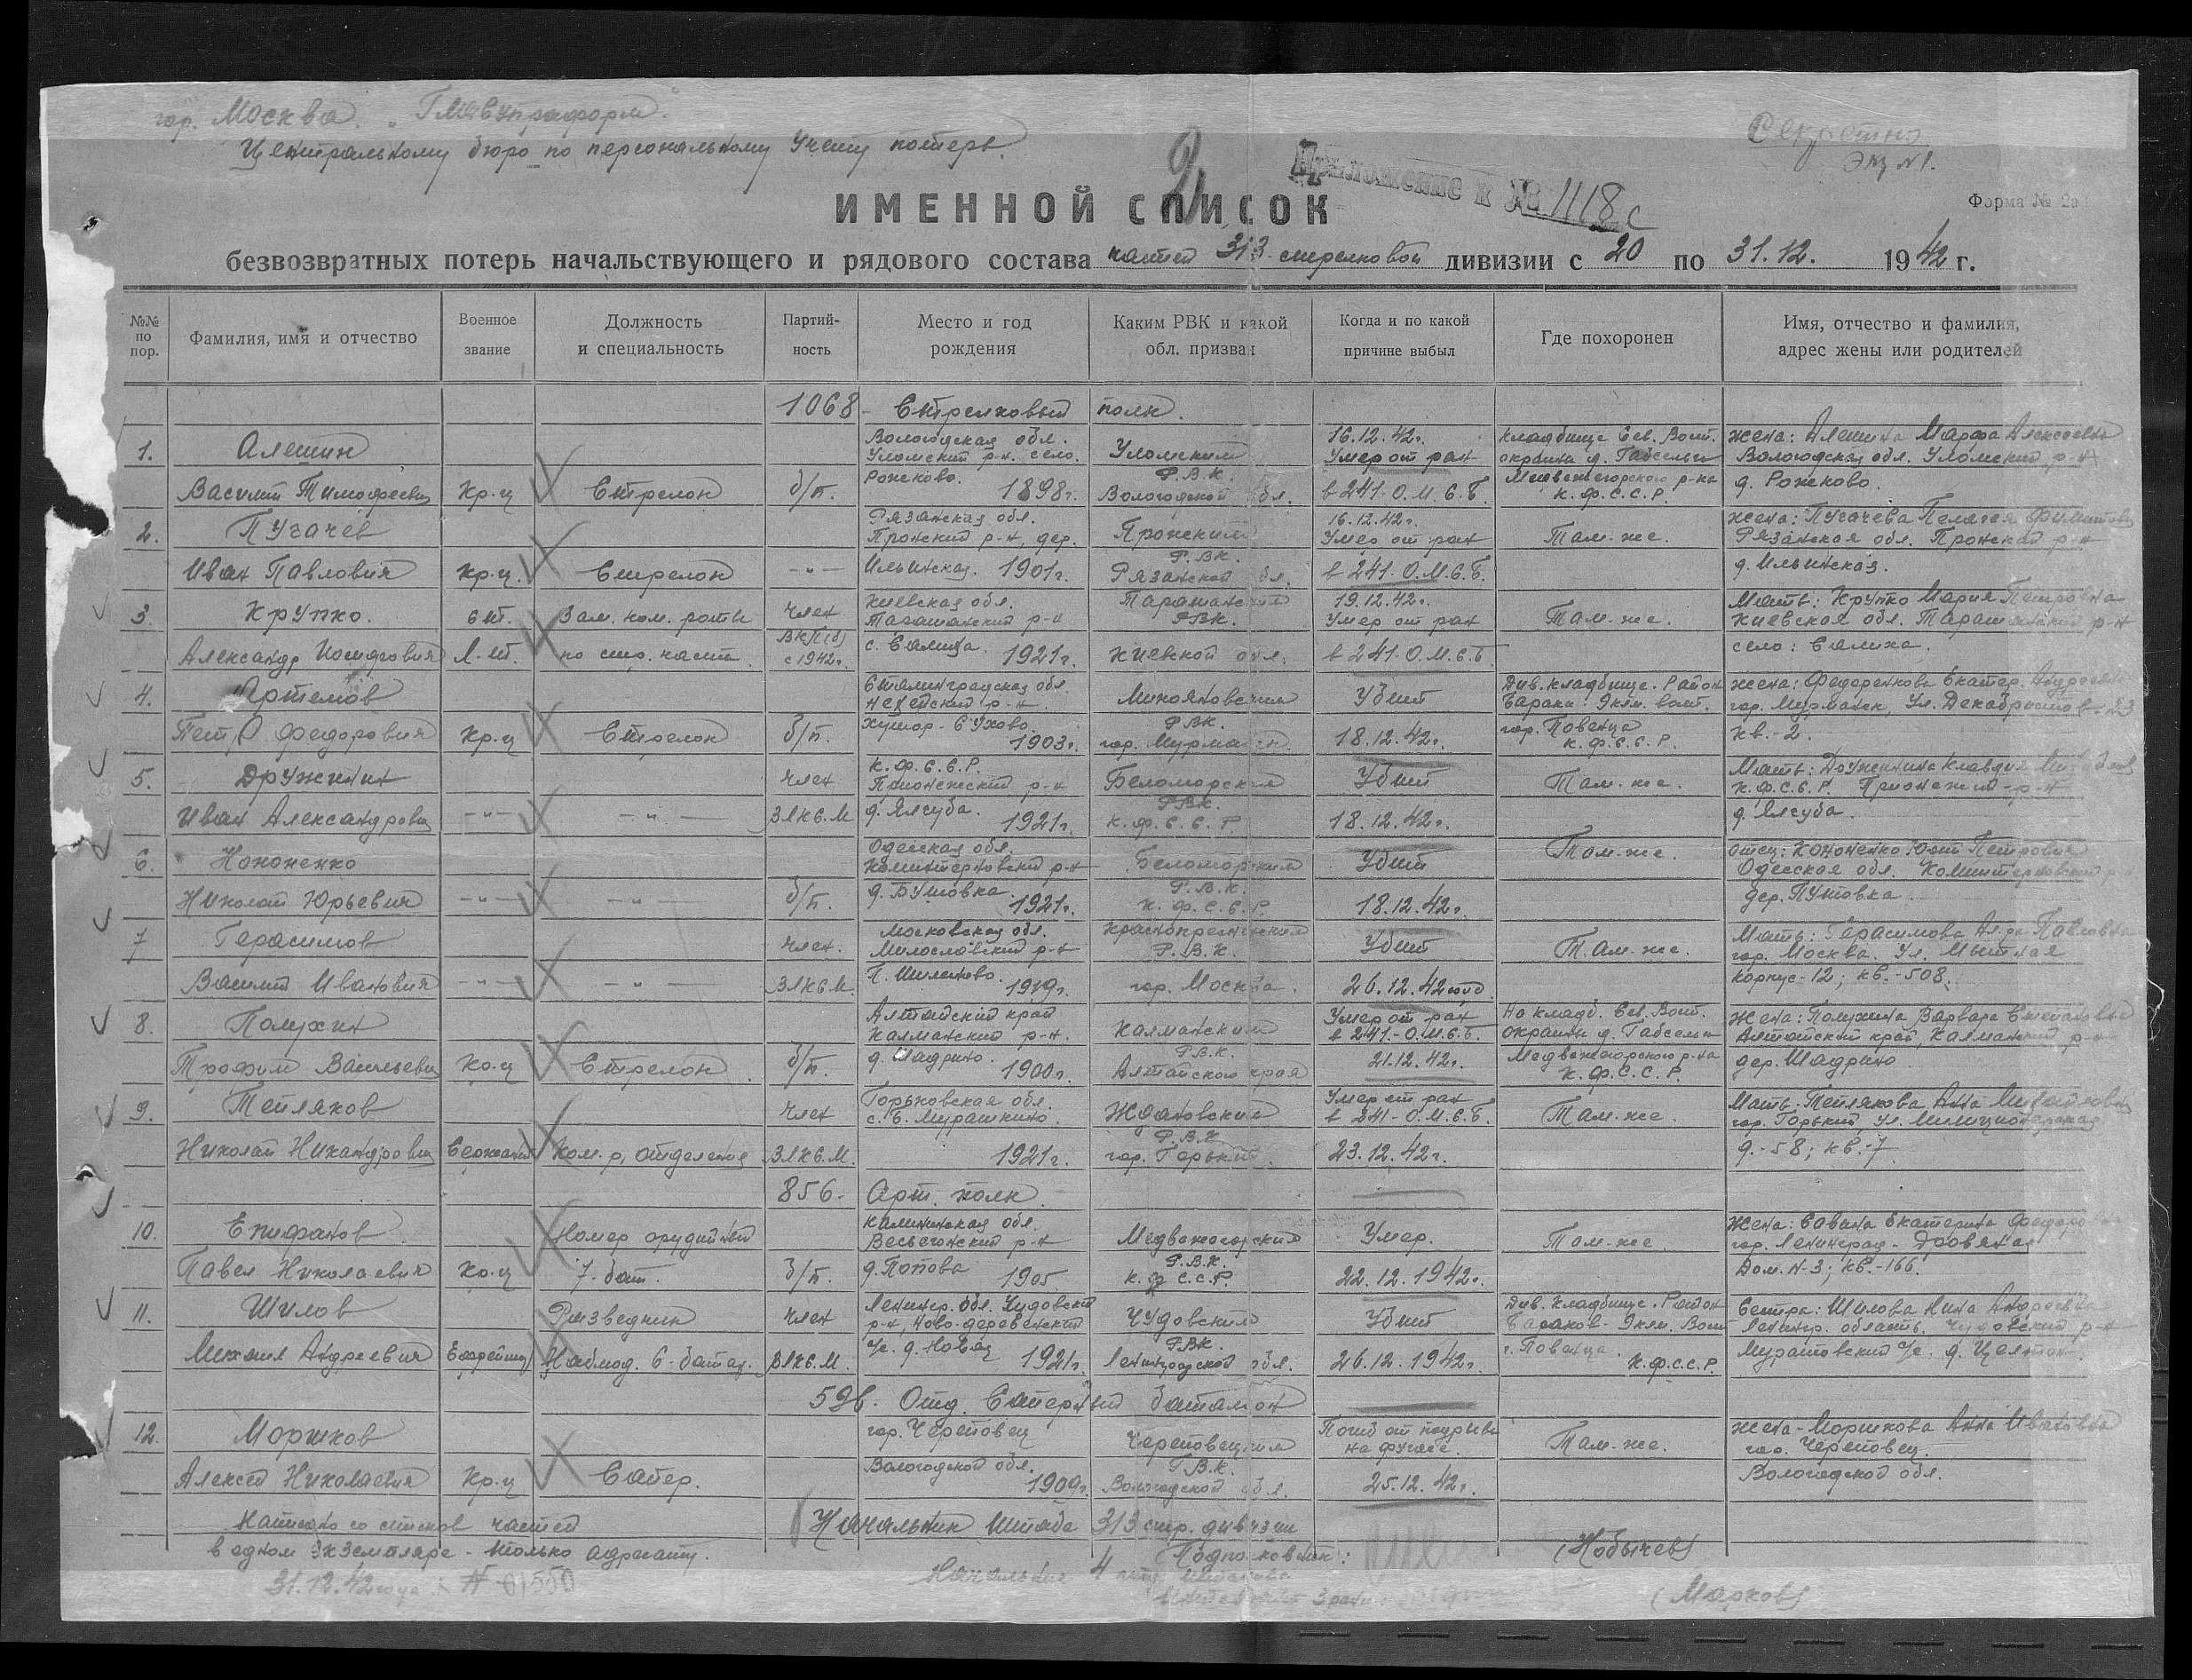 гор. Москва. „Главупраформ"
Центральному бюро по персональному учету потерь.
Секретно
Экз № 1.
Приложение к № 1118с
ИМЕННОЙ СПИСОК
Форма № 2а
безвозвратных потерь начальствующего и рядового состава частей 313 стрелковой дивизии с 20 по 31.12. 1942 г.
№№ по пор.
Фамилия, имя и отчество
Военное звание
Должность и специальность
Партийность
Место и год рождения
Каким РВК и какой обл. призван
Когда и по какой причине выбыл
Где похоронен
Имя, отчество и фамилия, адрес жены или родителей
1068 - Стрелковый полк.
1. Алешин
Василий Тимофеевич
Кр-ц
Стрелок
б/п.
Вологодская обл.
Уломский р-н. село.
Рожково. 1898г.
Уломским
Р.В.К.
Вологодской обл.
16.12.42г.
Умер от ран
в 241-О.М.С.Б.
кладбище Сев. Вост.
окраина д. Габсельга
Медвежегорского р-на
К.Ф.С.С.Р.
жена: Алешина Марфа Алексеевна
Вологодская обл. Уломский р-н
д. Рожково.
2. Пугачев
Иван Павлович
Кр-ц.
Стрелок
-"-
Рязанская обл.
Пронский р-н, дер.
Ильинская. 1901г.
Пронским
РВК.
Рязанской обл.
16.12.42г.
Умер от ран
в 241-О.М.С.Б.
Там-же.
жена: Пугачева Пелагея
Рязанская обл. Пронский р-н
д. Ильинская.
3. Крупко.
Александр Иосифович
ст.
Л-т.
Зам. ком. роты
по стр. части
член
ВКП(б)
с 1942г.
Киевская обл.
Таращанский р-н
с. Салиха. 1921г.
Таращанским
РВК.
Киевской обл.
19.12.42г.
Умер от ран
в 241-О.М.С.Б
Там-же.
Мать: Крупко Мария Петровна
Киевская обл. Таращанский р-н
село: Салиха.
4. Артемов
Петр Федорович
Кр-ц
Стрелок
б/п.
Сталинградская обл.
Нехаевский р-н.
Хутор- Сухово.
1903г.
Микояновским
РВК.
гор. Мурманск.
Убит
18.12.42г.
Див. кладбище. Район
гор. Повенца
К.Ф.С.С.Р.
жена: Федоренкова Екатер. Андреевна
гор. Мурманск, Ул. Декабристов-23
кв.-2.
5. Дружинин
Иван Александрович
-"-
-"-
член
ВЛКСМ
К.Ф.С.С.Р.
Прионежский р-н
д. Ялгуба. 1921г.
Беломорским
РВК.
К.Ф.С.С.Р.
Убит
18.12.42г.
Там-же.
Мать: Дружинина Клавдия
К.Ф.С.С.Р. Прионежский р-н
д. Ялгуба.
6. Кононенко
Николай Юрьевич
-"-
-"-
б/п.
Одесская обл.
Коминтерновский р-н
д. Бутовка. 1921г.
Беломорским
Р.В.К.
К.Ф.С.С.Р.
Убит
18.12.42г.
Там-же.
отец: Кононенко Юрий Петрович
Одесская обл. Коминтерновский р-н
дер. Путовка.
7 Герасимов
Василий Иванович
-"-
-"-
член.
ВЛКСМ.
Московская обл.
Милославский р-н
1919г.
Краснопресненским
Р.В.К.
гор. Москва.
Убит
26.12.42год
Там-же.
Мать: Герасимова Ал-ра Павловна
гор. Москва. Ул. Мытная
корпус-12; кв.-508.
8. Полухин
Трофим Васильевич
Кр-ц
Стрелок
б/п.
Алтайский край
Калманский р-н.
д. Шадрино. 1900г.
Калманским
Р.В.К.
Алтайского края
Умер от ран
в 241-О.М.С.Б.
21.12.42г.
На кладб. Сев. Вост.
окраины д. Габсельга
Медвежегорского р-на
К.Ф.С.С.Р.
Жена: Полухина Варвара Степановна
Алтайский край, Калманский р-н
дер. Шадрино
9. Тепляков
Николай Никандрович
Сержант
Ком-р, отделения
член
ВЛКСМ.
Горьковская обл.
с. Б. Мурашкино.
1921г.
Ждановским
Р.В.К
гор. Горький.
Умер от ран
в 241-О.М.С.Б.
23.12.42г.
Там-же.
Мать-Теплякова Анна Михайловна
гор. Горький, ул. Милиционерская
д.-58; кв.-7.
856- Арт. полк
10. Епифанов
Павел Николаевич
Кр-ц
Номер орудийный
7-бат.
б/п.
Калининская обл.
Весьегонский р-н
д. Попова 1905
Медвежегорским
Р.В.К.
К.Ф.С.С.Р.
Умер.
22.12.1942г.
Там-же
Жена: Савина Екатерина Федоровна
гор. Ленинград- Дровяная
Дом. N-3; кв.-166.
11. Шилов
Михаил Андреевич
Ефрейтор
Разведчик
Наблюд. 6-батар.
член
ВЛКСМ.
Ленингр. обл. Чудовский
р-н, Ново-деревенский
с/с. д. Новая 1921г.
Чудовским
РВК.
Ленинградской обл.
Убит
26.12.1942г.
Див. кладбище. Район
г. Повенца.
К.Ф.С.С.Р.
Сестра: Шилова Нина Андреевна
Ленингр. область. Чудовский р-н
12. Моршков
Алексей Николаевич
Кр-ц
Сапер.
593. Отд. Саперный батальон
гор. Череповец
Вологодской обл.
1909г.
Череповецким
Р.В.К.
Вологодской обл.
Погиб от подрыва
на фугасе.
25.12.42г.
Там-же.
жена-Моршкова Анна Ивановна
гор. Череповец.
Вологодской обл.
Написано со списков частей
в одном экземпляре - только адресату.
31.12.42 года № 01550
Начальник Штаба 313 стр. дивизии
Подполковник:
(Кобычев)
Начальник 4
(Марков)